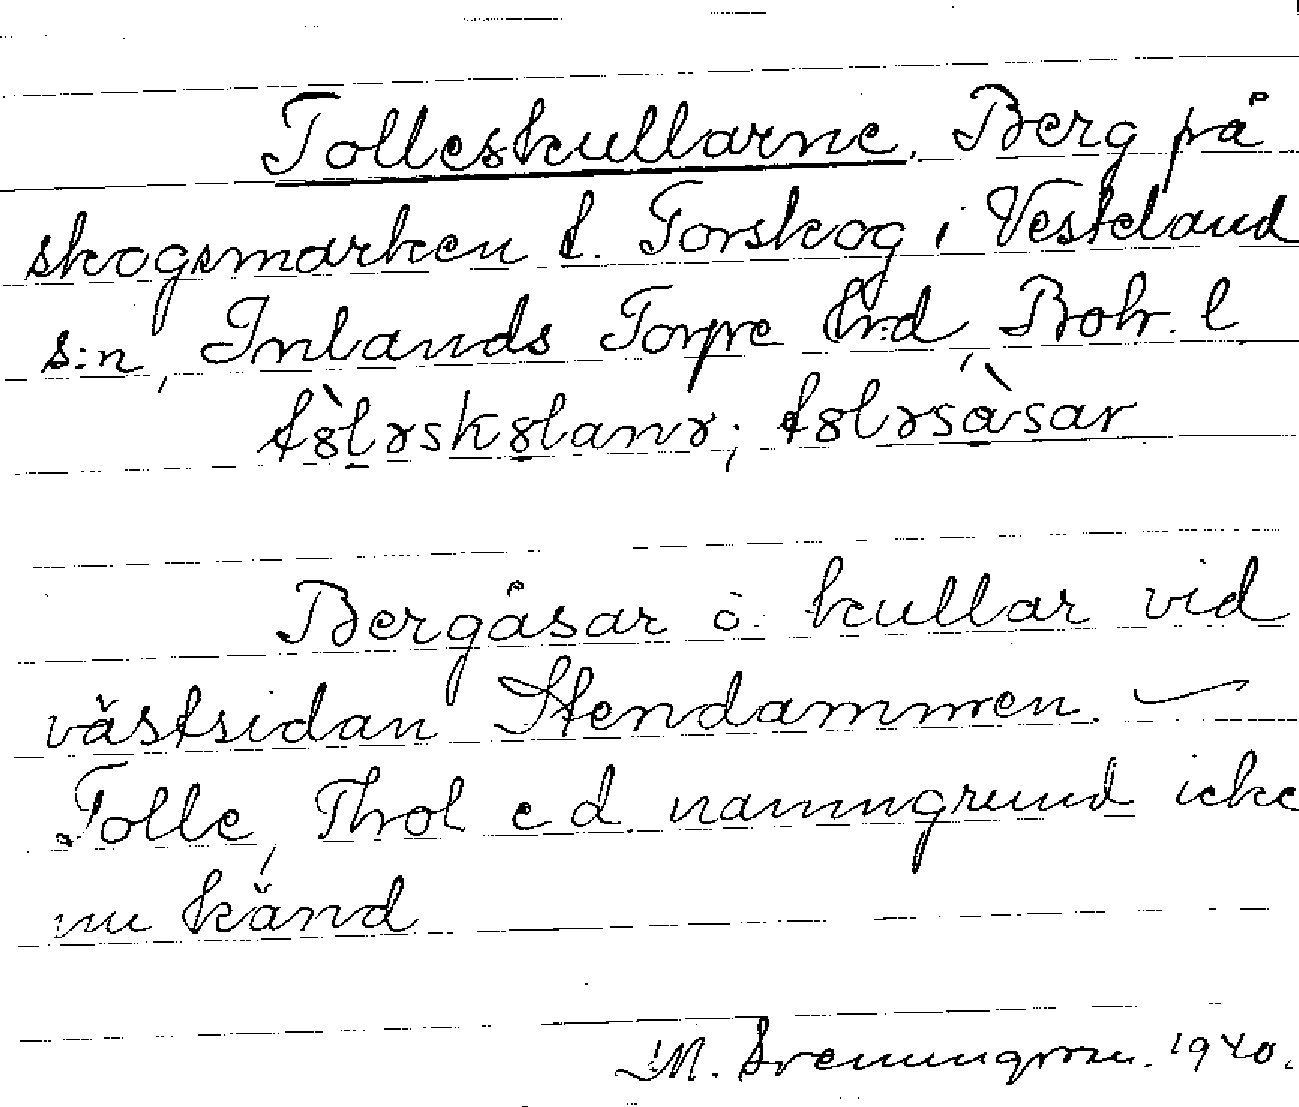 Tolleskullarne. Berg på
skogsmarken t. Torskog i Vesteland
s:n, Inlands Torpe hrd, Boh. l.
Bergåsar o. kullar vid
västsidan Stendammen. —
Tolle, Thol e d. namngrund icke
nu känd
M. 1940.